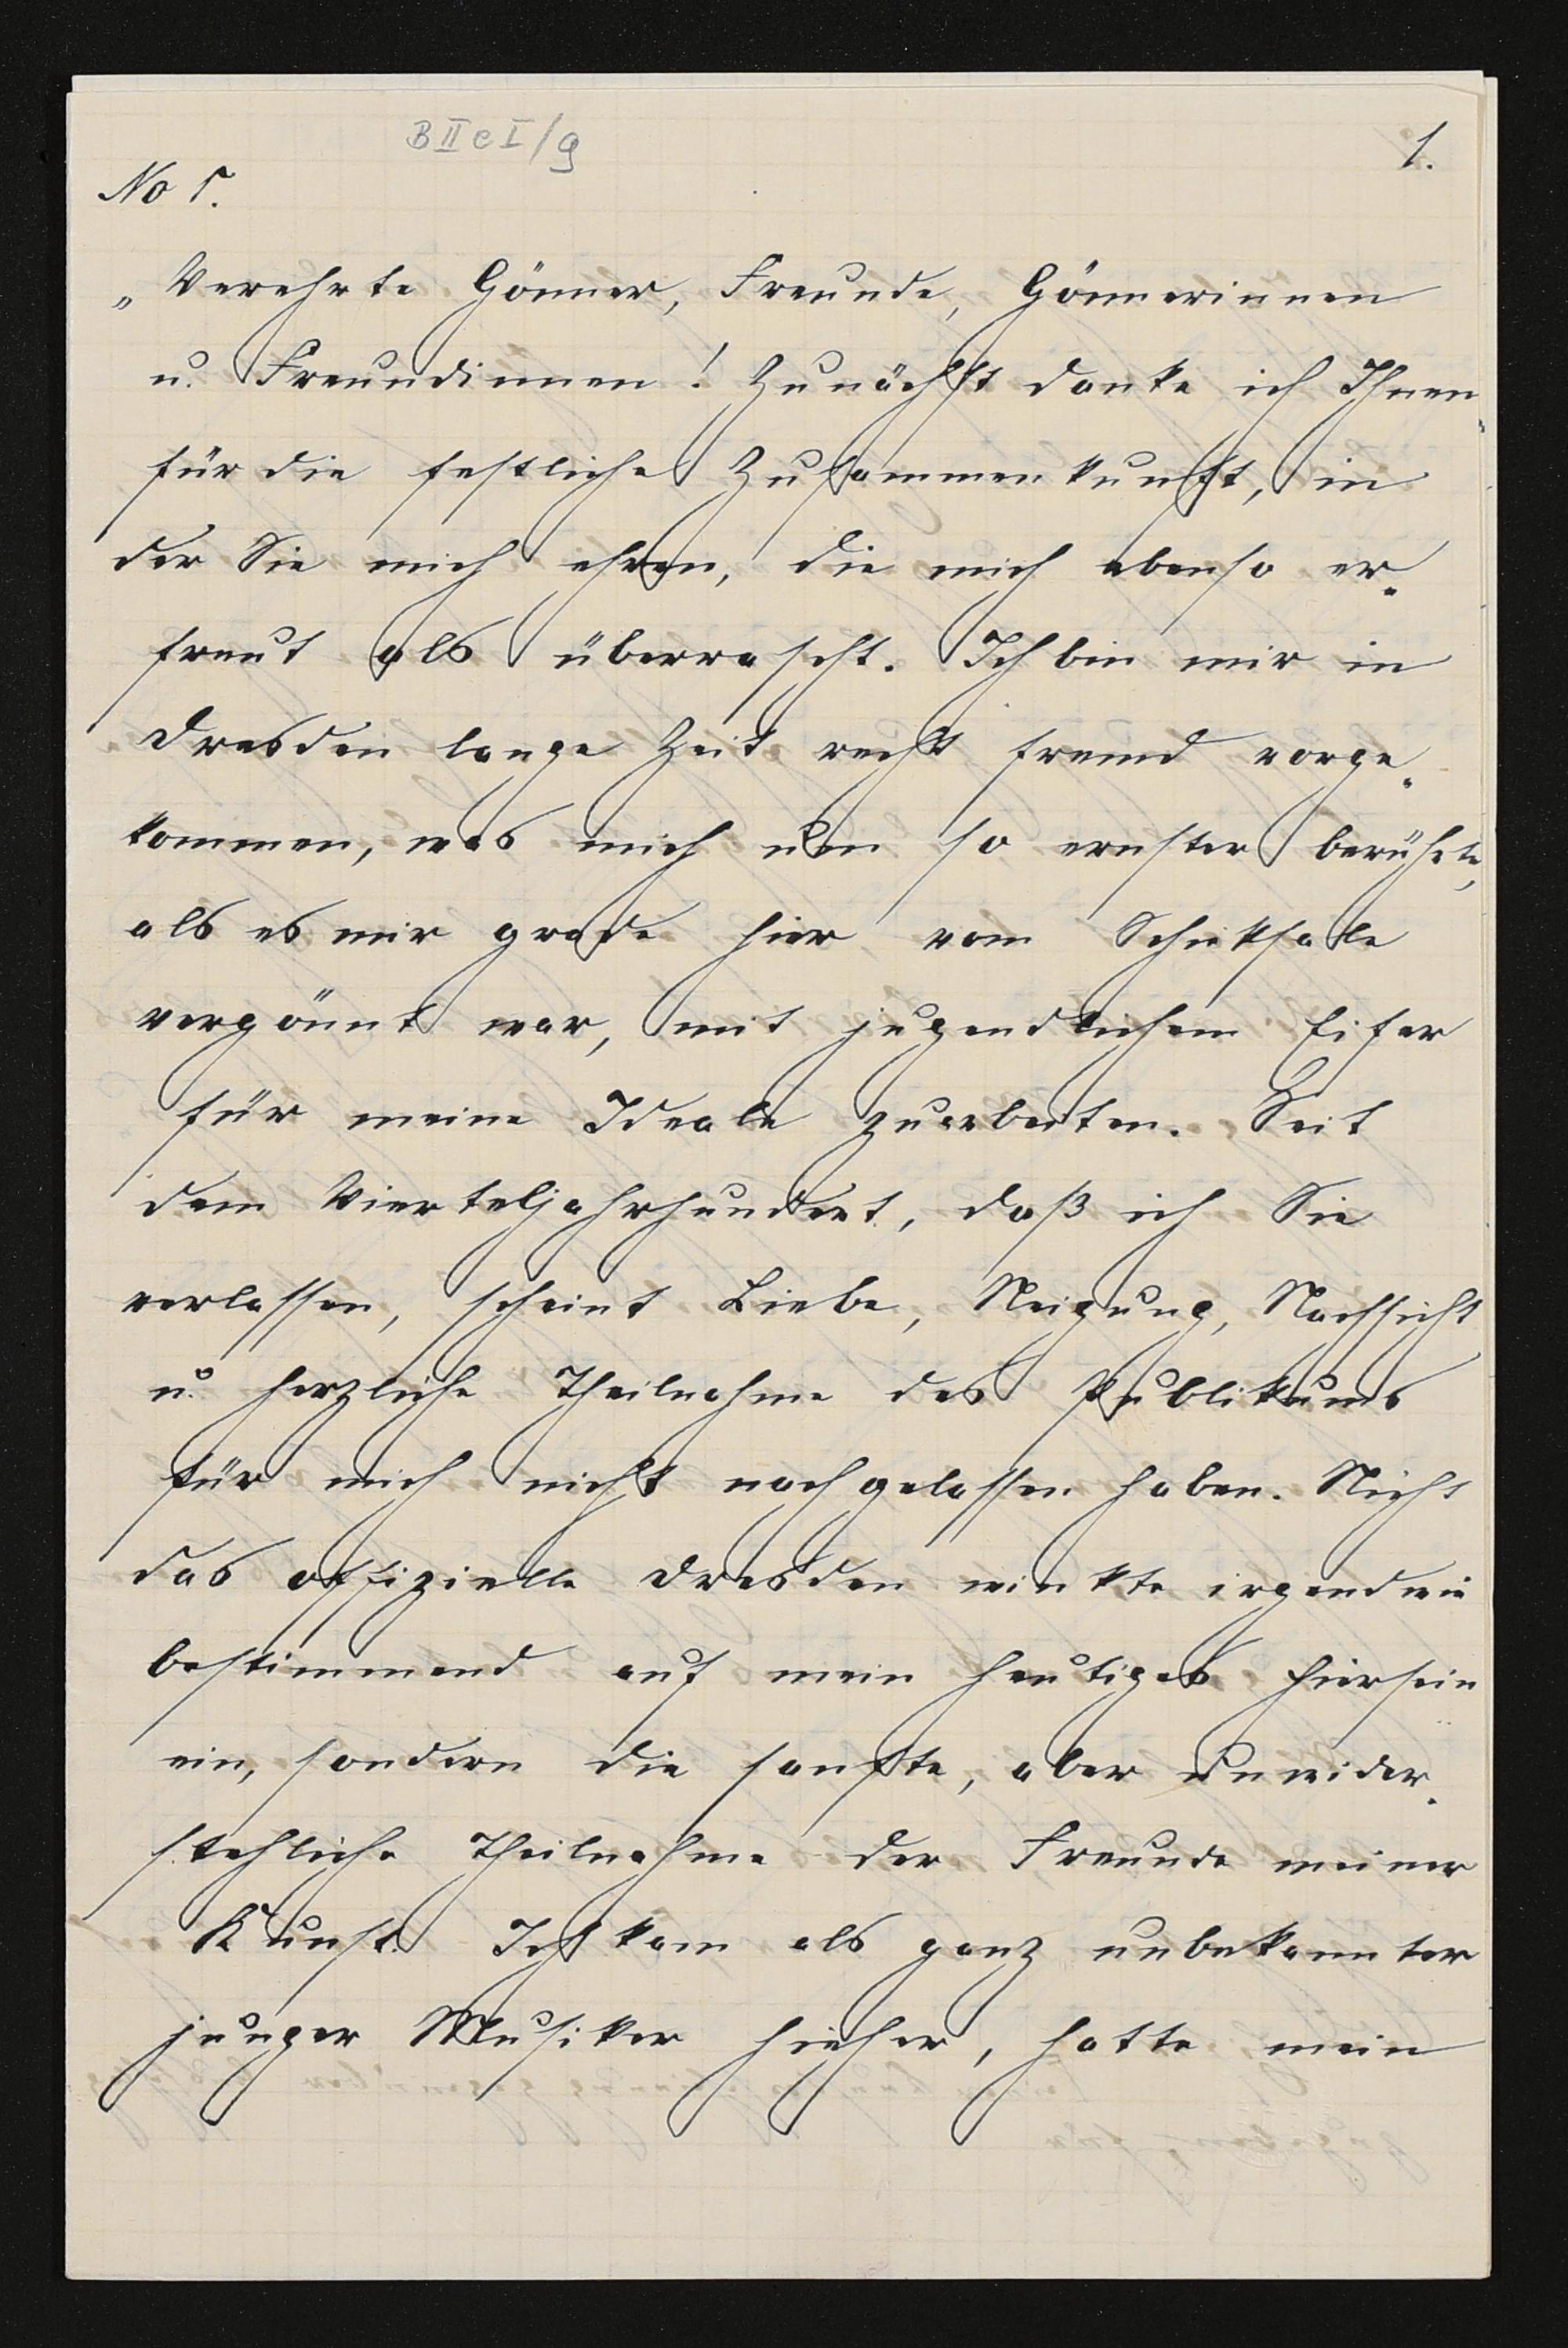 B II e I/g
1.
No 5.
„Verehrte Gönner, Freunde, Gönnerinnen
u. Freundinnen! Zunächst danke ich Ihnen
für die festliche Zusammenkunft, in
der Sie mich ehren, die mich ebenso er-
freut als überrascht. Ich bin mir in
Dresden lange Zeit recht fremd vorge-
kommen, was mich um so ernster berührte,
als es mir grade hier vom Schiksale
vergönnt war, mit jugendlichem Eifer
für meine Ideale zuarbeiten. Seit
dem Vierteljahrhundert, daß ich Sie
verlassen, scheint Liebe, Neigung, Nachsicht
u. herzliche Theilnahme des Publikums
für mich nicht nachgelassen haben. Nicht
das offizielle Dresden winkte irgendwie
bestimmend auf mein heutiges Hiersein
ein, sondern die sanfte, aber unwider-
stehliche Theilnahme der Freunde meiner
Kunst. Ich kam als ganz unbekannter
junger Musiker hieher, hatte mein